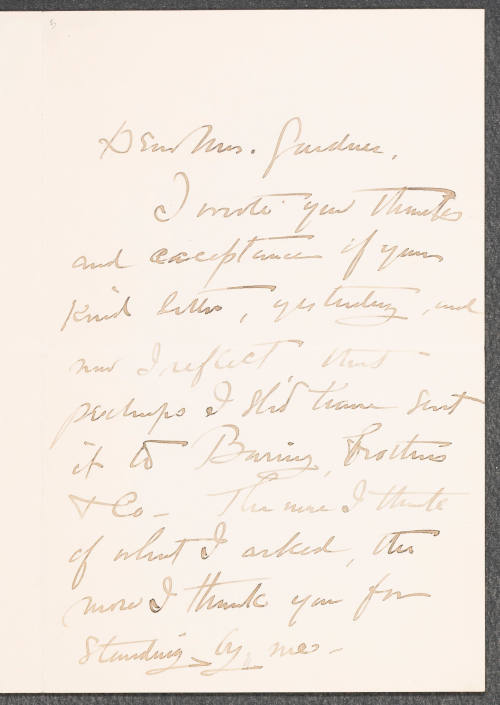 Dear Mrs. Gardner.
I wrote you thanks
and acceptance of your
kind letter, yesterday, and
now I reflect that
perhaps I sh'd have sent
it to Baring, Brothers
& Co - The more I think
of what I asked, the
more I thank you for
standing by me -